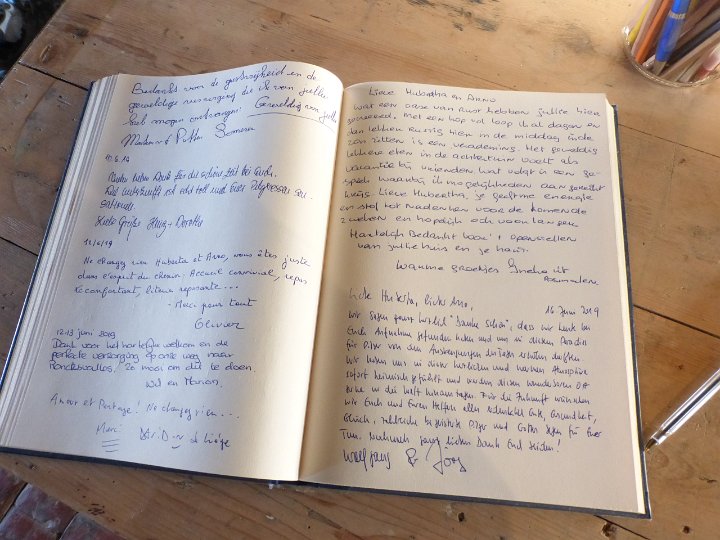 Bedankt voor de gastvrijheid en de
geweldige verzorging die ik van jullie
heb mogen ontvangen. Geweldig van jullie
10.6.19
Vielen lieben Dank für die schöne Zeit bei Euch.
Die Unterkunft ist echt toll und hier Pilgeroasen
Liebe Grüße + Dorothe
11/6/19
Ne changez rien Huberta et Arno, vous êtes juste
dans l'esprit du chemin: Accueil convivial, repas
réconfortant, literie reposante...
- Merci pour tout
Olivier
12-13 juni 2019
Dank voor het hartelijke welkom en de
perfecte verzorging op onze weg naar
Roncesvalles. Zo mooi om dit te doen.
Wil en Marion.
Amour et Partage. Ne changez rien...
Merci de Liège
Lieve Hubertha en Arno
Wat een oase van rust hebben jullie hier
gecreëerd. Met een hop val loop ik al dagen en
dan lekker rustig hier in de middag
zon zitten is een verademing. Het geweldig
lekkere eten in de achtertuin voelt als
vakantie bij vrienden wat volgt in een ge-
sprek waarbij
Lieve Hubertha, je geeft me energie
en stof tot nadenken voor de komende
weken en hopelijk och voor langer.
Hartelijk Bedankt voor 't openstellen
van jullie huis en je hart.
Warme groetjes
16 Juni 2019
Liebe Huberta, lieber Arno,
wir sagen ganz herzlich "Danke schön", dass wir heute bei
Euch Aufnahme gefunden haben und uns in diesem Paradies
für Pilger von den Anstrengungen des Tages erholen durften.
Wir haben uns in dieser herzlichen und warmen Atmosphäre
sofort heimisch gefühlt und werden diesen wunderbaren Ort
Für die Zukunft wünschen
wir Euch und Euren Helfern alles erdenklich Gute, Gesundheit,
Glück, zahlreiche begeisterte Pilger und Gottes Segen für Euer
Tun. Nochmals ganz lieben Dank Euch beiden!
Wolfgang & Jörg